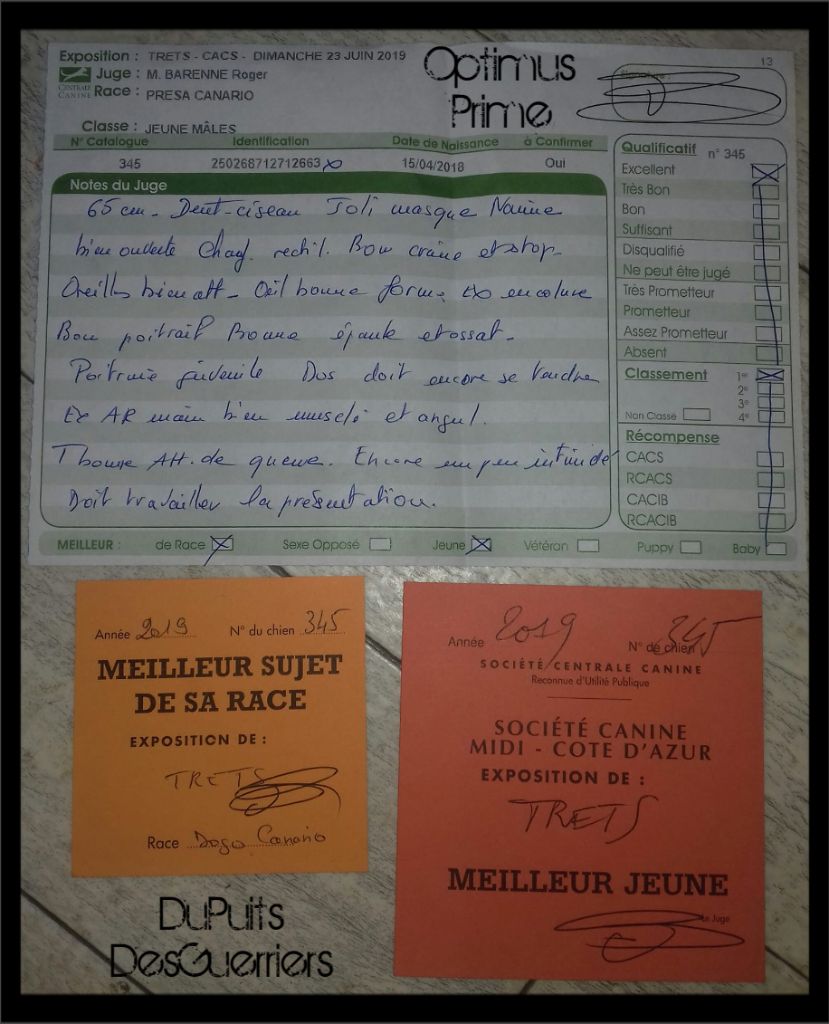 Exposition : TRETS - CACS - DIMANCHE 23 JUIN 2019
Optimus
Prime
13
Juge : M. BARENNE Roger
CENTRALE
CANINE
Race : PRESA CANARIO
Classe : JEUNE MÂLES
N° Catalogue Identification Date de Naissance à Confirmer
345 250268712712663 15/04/2018 Oui
Notes du Juge
65 cm. Dent-ciseau Joli masque Narine
bien ouverte Chanf. rectil. Bon crâne et stop.
Oreilles bien att. Oeil bonne forme. Ex encolure
Bon poitrail Bonne épaule et ossat.
Poitrine juvénile Dos doit encore se tendre
Ex AR main bien musclé et angul.
Tbonne Att. de queue. Encore un peu intimidé
Doit travailler la présentation.
Qualificatif n° 345
Excellent
Très Bon
Bon
Suffisant
Disqualifié
Ne peut être jugé
Très Prometteur
Prometteur
Assez Prometteur
Absent
Classement 1er
2e
3e
Non Classé 4e
Récompense
CACS
RCACS
CACIB
RCACIB
MEILLEUR : de Race Sexe Opposé Jeune Vétéran Puppy Baby
Année 2019 N° du chien 345
MEILLEUR SUJET
DE SA RACE
EXPOSITION DE :
TRETS
Race Dogo Canario
Année 2019 N° de chien 345
SOCIÉTÉ CENTRALE CANINE
Reconnue d'Utilité Publique
SOCIÉTÉ CANINE
MIDI - COTE D'AZUR
EXPOSITION DE :
TRETS
MEILLEUR JEUNE
Le Juge
DuPuits
DesGuerriers